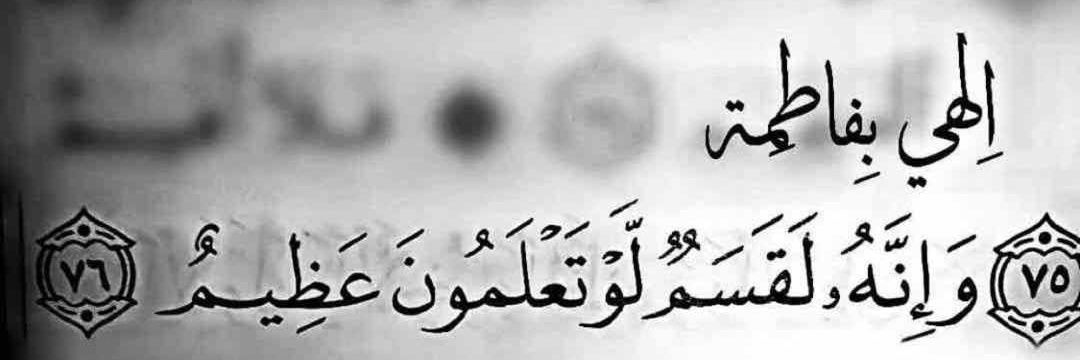 اِلهي بِفاطِمة
٧٥ وَإِنَّهُۥ لَقَسَمٌ لَّوْ تَعْلَمُونَ عَظِيمٌ ٧٦